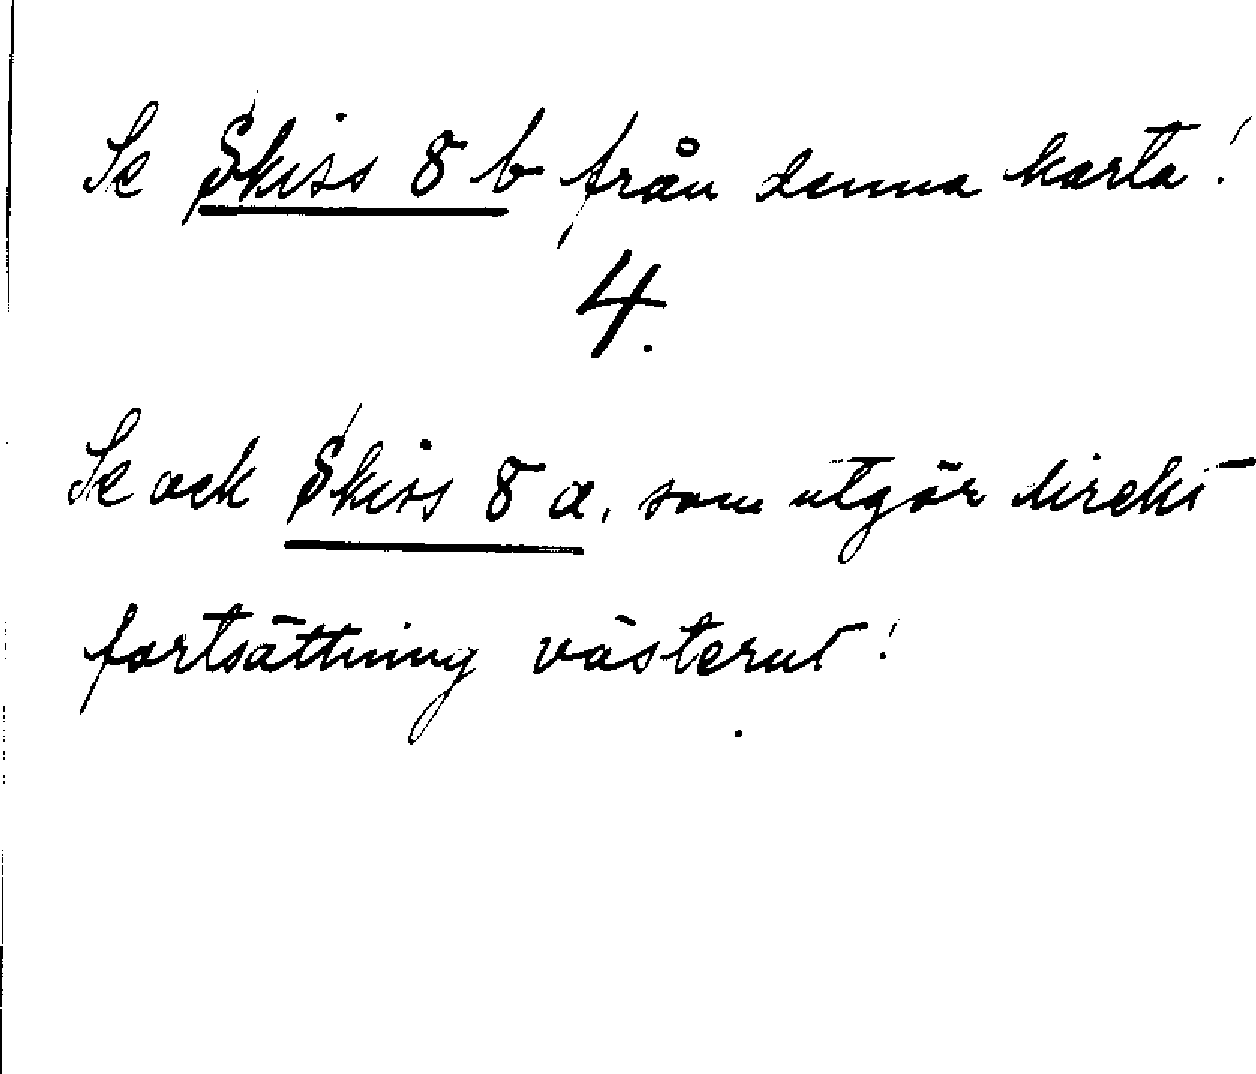 Se Skiss 8 b från denna karta!
4.
Se ock Skiss 8 a, som utgör direkt
fortsättning västerut!